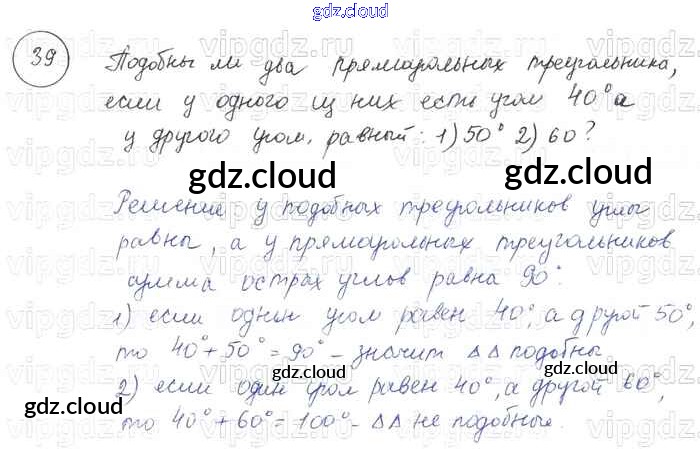 gdz.cloud
39
Подобны ли два прямоугольных треугольника,
если у одного из них есть угол 40° а
у другого угол, равный: 1) 50° 2) 60?
gdz.cloud gdz.cloud
Решение у подобных треугольников углы
равны, а у прямоугольных треугольников
сумма острых углов равна 90°.
1) если один угол равен 40°, а другой 50°,
то 40° + 50° = 90° – значит ΔΔ подобны
gdz.cloud
2) если один угол равен 40°, а другой 60°,
gdz.cloud
то 40° + 60° = 100° – ΔΔ не подобные.
gdz.cloud